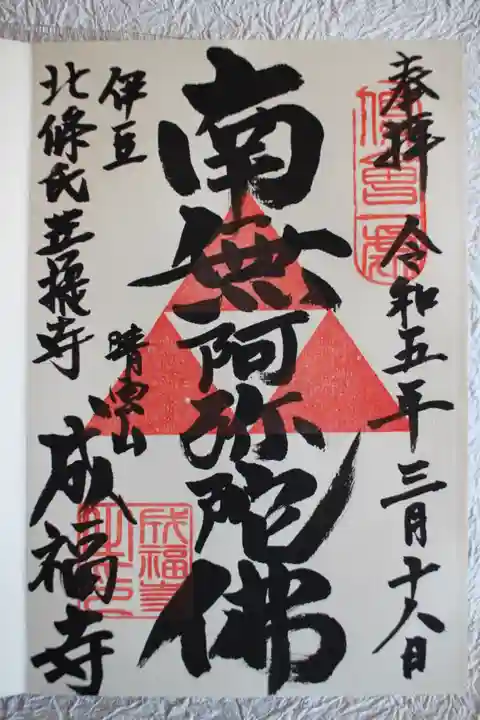 奉拝
令和五年三月十八日
南無阿弥陀佛
伊豆
北條氏菩提寺
晴雲山
成福寺
成福寺